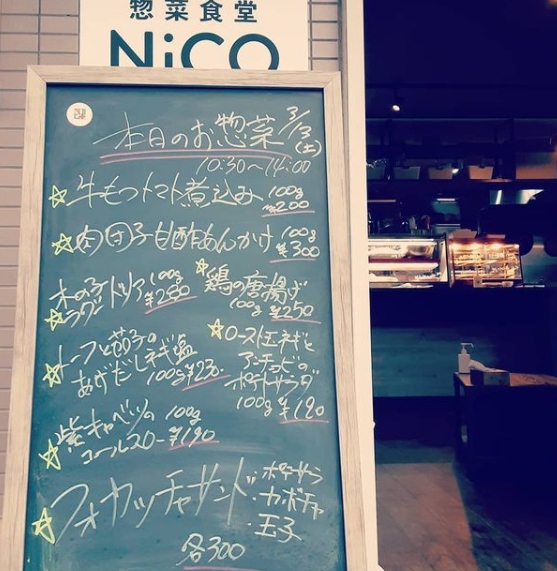 惣菜食堂
NiCO
本日のお惣菜 3/13(土)
10:30〜14:00
牛もつトマト煮込み 100g ¥200
肉団子甘酢あんかけ 100g ¥300
木の子
ラグードリア 100g ¥280
鶏の唐揚げ
100g ¥250
トーフと茄子の
あげだしネギ塩
100g ¥230
ロースト玉ネギと
アンチョビの
ポテトサラダ
100g ¥190
紫キャベツの 100g
コールスロー ¥190
フォカッチャサンド
・ポテサラ
・カボチャ
・玉子
各300